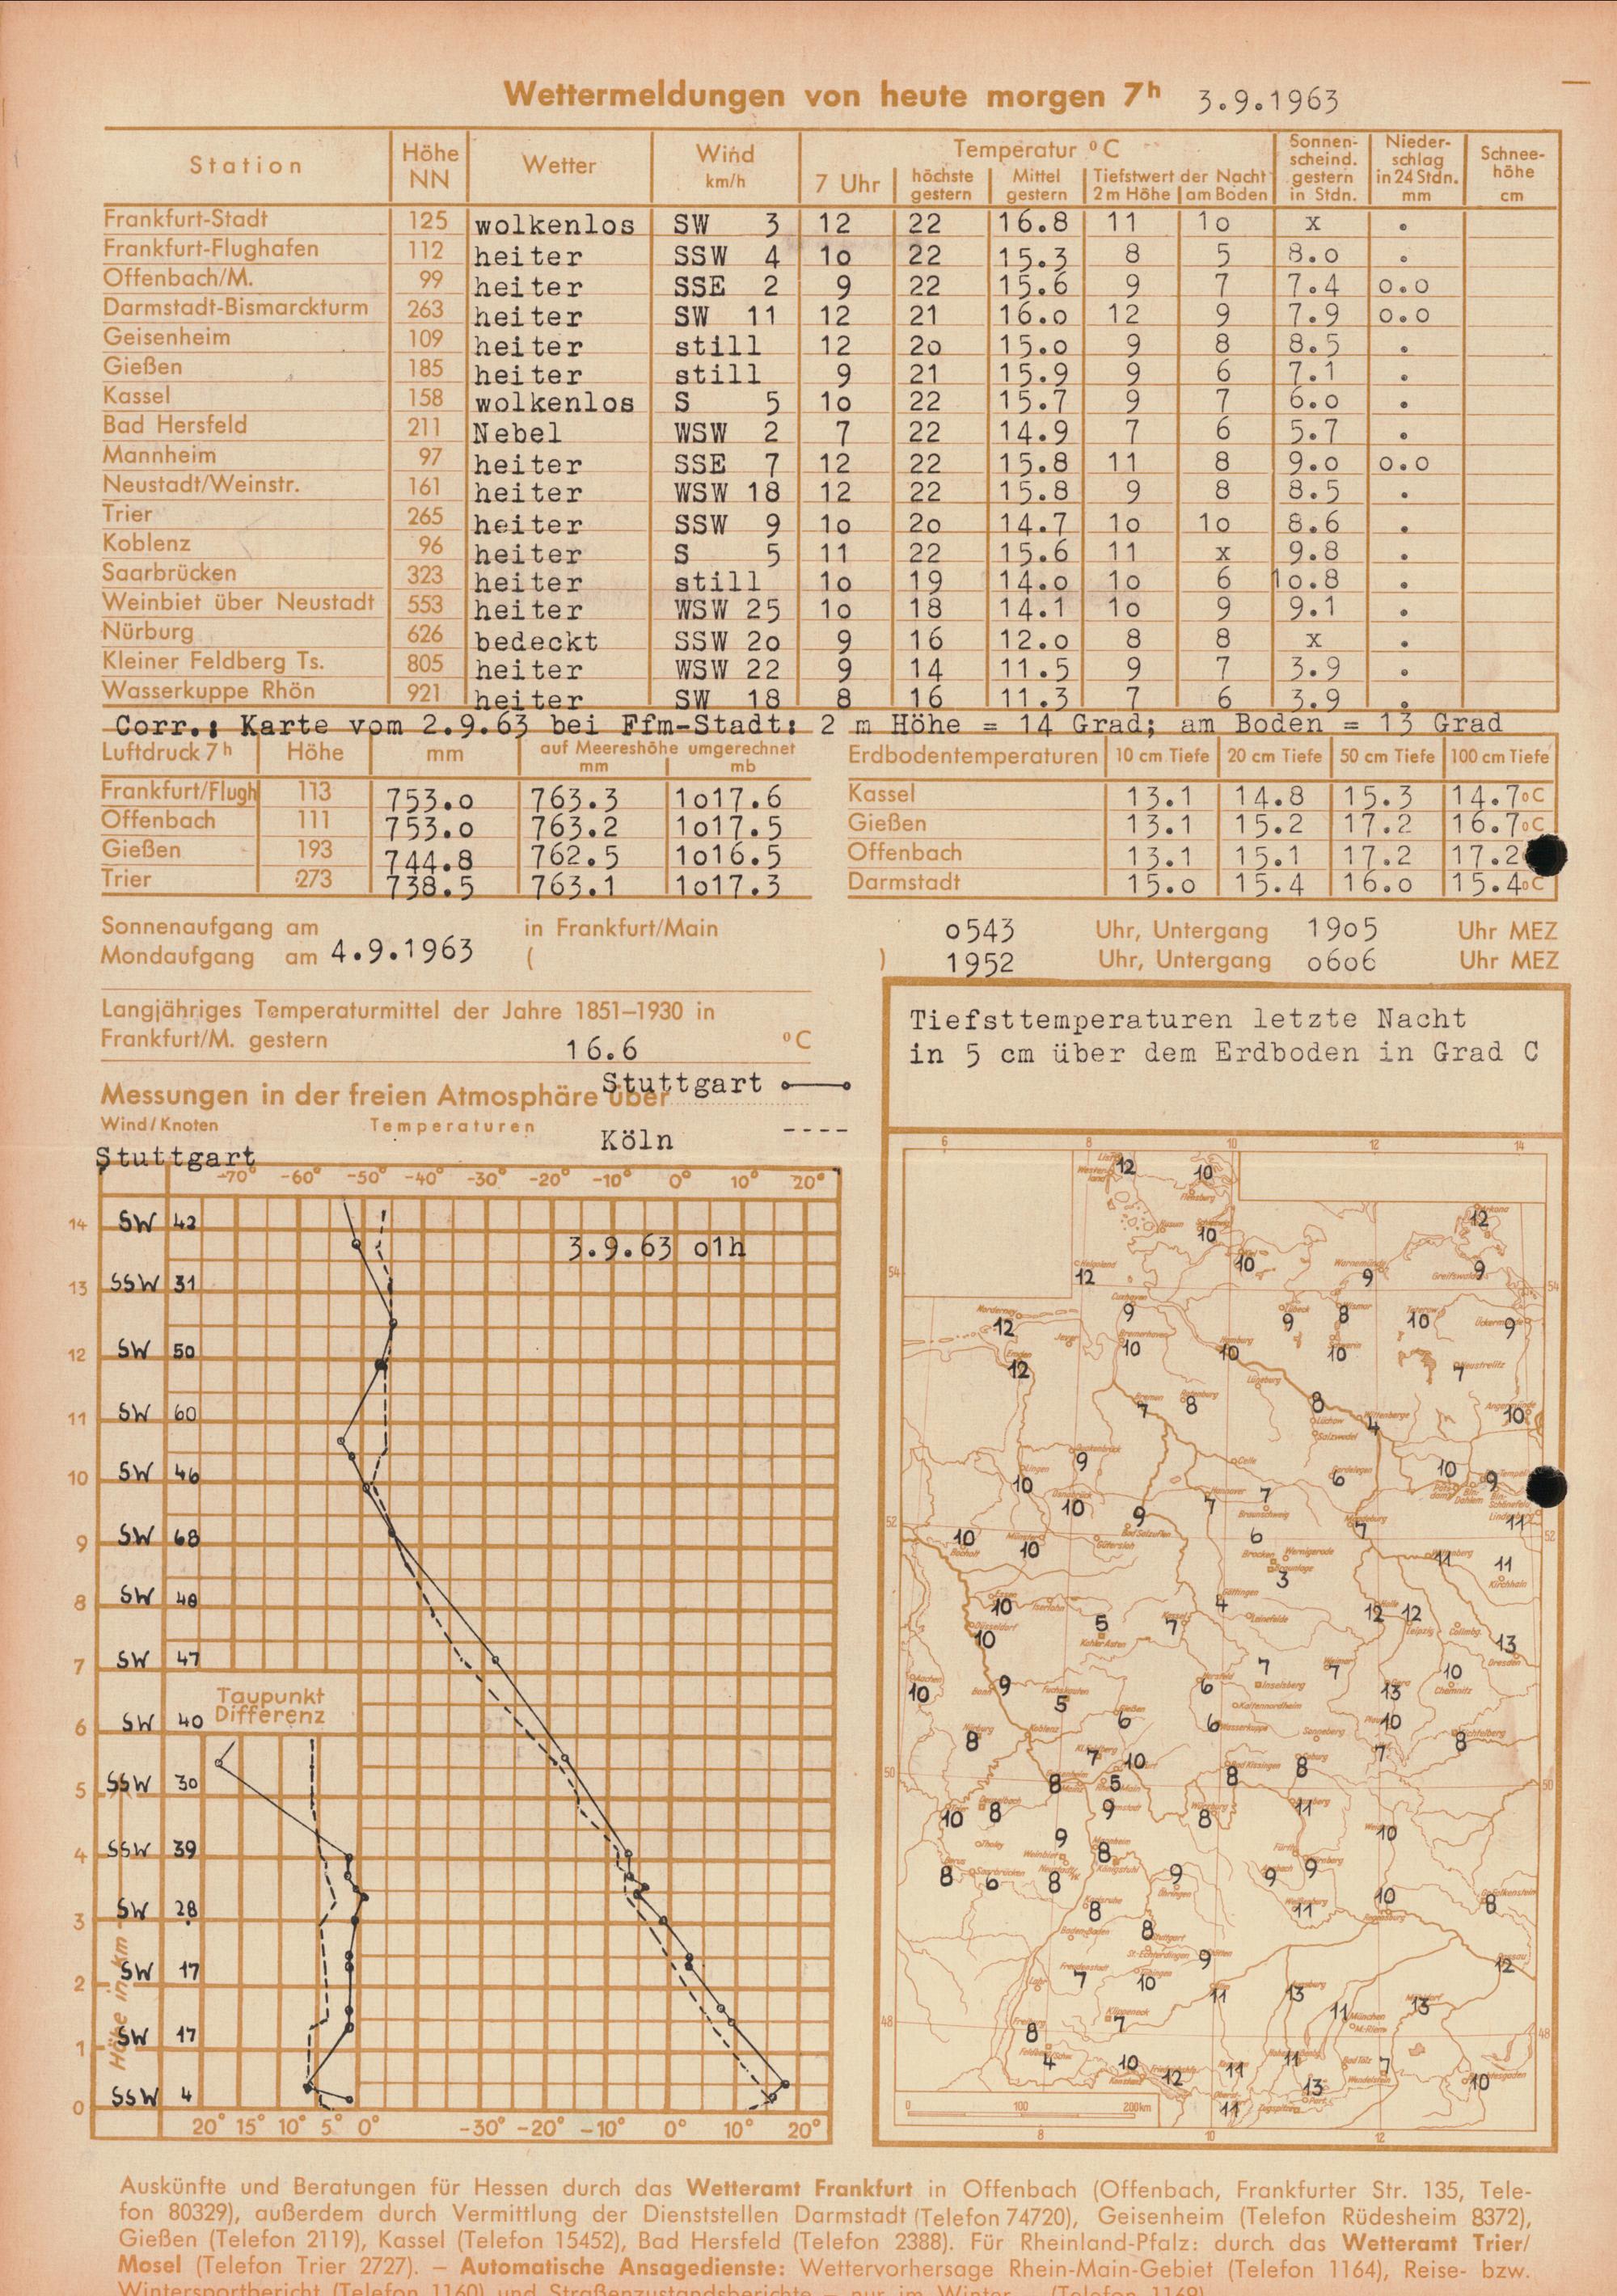 Wettermeldungen von heute morgen 7h 3.9.1963
Station Höhe NN Wetter Wind km/h Temperatur °C 7 Uhr höchste gestern Mittel gestern Tiefstwert der Nacht 2m Höhe am Boden Sonnenscheind. gestern in Stdn. Niederschlag in 24 Stdn. mm Schneehöhe cm
Frankfurt-Stadt 125 wolkenlos SW 3 12 22 16.8 11 1o x .
Frankfurt-Flughafen 112 heiter SSW 4 1o 22 15.3 8 5 8.o .
Offenbach/M. 99 heiter SSE 2 9 22 15.6 9 7 7.4 o.o
Darmstadt-Bismarckturm 263 heiter SW 11 12 21 16.o 12 9 7.9 o.o
Geisenheim 109 heiter still 12 2o 15.o 9 8 8.5 .
Gießen 185 heiter still 9 21 15.9 9 6 7.1 .
Kassel 158 wolkenlos S 5 1o 22 15.7 9 7 6.o .
Bad Hersfeld 211 Nebel WSW 2 7 22 14.9 7 6 5.7 .
Mannheim 97 heiter SSE 7 12 22 15.8 11 8 9.o o.o
Neustadt/Weinstr. 161 heiter WSW 18 12 22 15.8 9 8 8.5 .
Trier 265 heiter SSW 9 1o 2o 14.7 1o 1o 8.6 .
Koblenz 96 heiter S 5 11 22 15.6 11 x 9.8 .
Saarbrücken 323 heiter still 1o 19 14.o 1o 6 1o.8 .
Weinbiet über Neustadt 553 heiter WSW 25 1o 18 14.1 1o 9 9.1 .
Nürburg 626 bedeckt SSW 2o 9 16 12.o 8 8 x .
Kleiner Feldberg Ts. 805 heiter WSW 22 9 14 11.5 9 7 3.9 .
Wasserkuppe Rhön 921 heiter SW 18 8 16 11.3 7 6 3.9 .
Corr.: Karte vom 2.9.63 bei Ffm-Stadt: 2 m Höhe = 14 Grad; am Boden = 13 Grad
Luftdruck 7h Höhe mm auf Meereshöhe umgerechnet mm mb
Frankfurt/Flugh 113 753.o 763.3 1o17.6
Offenbach 111 753.o 763.2 1o17.5
Gießen 193 744.8 762.5 1o16.5
Trier 273 738.5 763.1 1o17.3
Erdbodentemperaturen 10 cm Tiefe 20 cm Tiefe 50 cm Tiefe 100 cm Tiefe
Kassel 13.1 14.8 15.3 14.7°C
Gießen 13.1 15.2 17.2 16.7°C
Offenbach 13.1 15.1 17.2 17.2
Darmstadt 15.o 15.4 16.o 15.4°C
Sonnenaufgang am in Frankfurt/Main o543 Uhr, Untergang 19o5 Uhr MEZ
Mondaufgang am 4.9.1963 ( ) 1952 Uhr, Untergang o6o6 Uhr MEZ
Langjähriges Temperaturmittel der Jahre 1851–1930 in
Frankfurt/M. gestern 16.6 °C
Messungen in der freien Atmosphäre über Stuttgart
Wind/Knoten Temperaturen Köln ----
Stuttgart
-70° -60° -50° -40° -30° -20° -10° 0° 10° 20°
3.9.63 o1h
14 SW 42
13 SSW 31
12 SW 50
11 SW 60
10 SW 46
9 SW 68
8 SW 48
7 SW 47
Taupunkt
Differenz
6 SW 40
5 SSW 30
4 SSW 39
3 SW 28
2 SW 17
1 SW 17
0 SSW 4
Höhe in km
20° 15° 10° 5° 0° -30° -20° -10° 0° 10° 20°
Tiefsttemperaturen letzte Nacht
in 5 cm über dem Erdboden in Grad C
6 8 10 12 14
12 10
10 12
12 10 9 9
12 9 9 8 10 9
12 10 10 10 7
7 8 8 4 10
10 9 6 10 9
10 9 7 7 7 11
10 10 6 11 11
3
10 5 7 4 12 12
10 13
10 9 5 6 7 7 13 10
8 6 6 10 8
7 10 7
8 5 8 8
10 8 9 8 11 10
9 8
8 6 8 9 9 9
8 11 10 8
8 9 12
7 10 11 13 11 13
8 7
4 10 12 11 11 7 10
11 13
0 100 200km
8 10 12
Auskünfte und Beratungen für Hessen durch das Wetteramt Frankfurt in Offenbach (Offenbach, Frankfurter Str. 135, Tele-
fon 80329), außerdem durch Vermittlung der Dienststellen Darmstadt (Telefon 74720), Geisenheim (Telefon Rüdesheim 8372),
Gießen (Telefon 2119), Kassel (Telefon 15452), Bad Hersfeld (Telefon 2388). Für Rheinland-Pfalz: durch das Wetteramt Trier/
Mosel (Telefon Trier 2727). – Automatische Ansagedienste: Wettervorhersage Rhein-Main-Gebiet (Telefon 1164), Reise- bzw.
Wintersportbericht (Telefon 1160) und Straßenzustandsberichte – nur im Winter – (Telefon 1169)